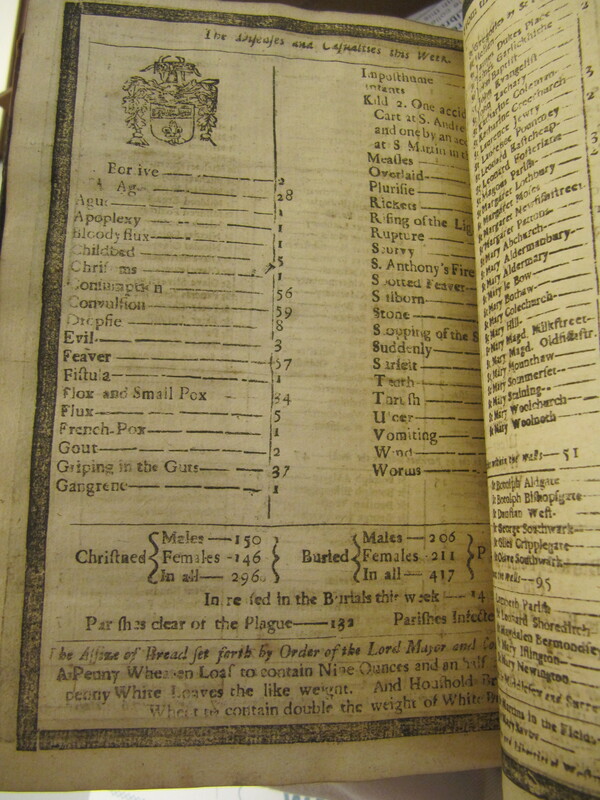 The Diseases and Casualties this Week.
Abortive — 2
Aged — 28
Ague — 1
Apoplexy — 1
Bloody flux — 1
Childbed — 5
Chrisoms — 1
Consumption — 56
Convulsion — 59
Dropsie — 8
Evil — 3
Feaver — 57
Fistula — 1
Flox and Small Pox — 34
Flux — 5
French-Pox — 1
Gout — 2
Griping in the Guts — 37
Gangrene — 1
Imposthume
Infants
Kild 2. One accid
Cart at S. Andre
and one by an ac
at S Martin in th
Meaſles
Overlaid
Pluriſie
Rickets
Riſing of the Lig
Rupture
Scurvy
S. Anthony's Fire
Spotted Feaver
Stilborn
Stone
Stopping of the S
Suddenly
Surfeit
Teeth
Thruſh
Ulcer
Vomiting
Wind
Worms
Chriſtned Males — 150 Females — 146 In all — 296
Buried Males — 206 Females — 211 In all — 417 P
Increaſed in the Burials this week — 14
Pariſhes clear of the Plague — 132 Pariſhes Infecte
The Aſſize of Bread ſet forth by Order of the Lord Mayor and Co
A Penny Wheaten Loaf to contain Nine Ounces and an half
penny White Loaves the like weight. And Houſhold Br
Wheat to contain double the weight of White
James Dukes Place
Katharine Coleman
Katharine Creechurch
Lawrence Jewry
Lawrence Pountney
Leonard Eaſtcheap
Leonard Foſterlane
Magnus Pariſh
Margaret Lothbury
Margaret Moſes
Margaret Newfiſhſtreet
Margaret Pattons
Mary Abchurch
Mary Aldermanbury
Mary Aldermary
Mary le Bow
Mary Bothaw
Mary Colechurch
Mary Hill
Mary Magd. Milkſtreet
Mary Magd. Oldfiſhſtr.
Mary Mounthaw
Mary Sommerſet
Mary Staining
Mary Woolchurch
Mary Woolnoth
within the walls — 51
Botolph Aldgate
Botolph Biſhopſgate
Dunſtan Weſt
George Southwark
Giles Cripplegate
Olave Southwark
the walls — 95
Lambeth Pariſh
Leonard Shoreditch
Magdalen Bermondſey
Mary Iſlington
Mary Newington